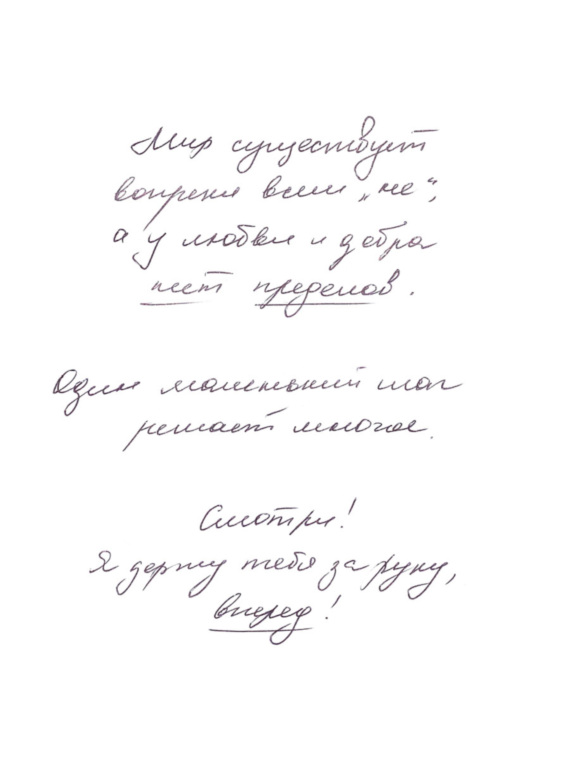 Мир существует
вопреки всем „не“,
а у любви и добра
нет пределов.
Один маленький шаг
решает многое.
Смотри!
Я держу тебя за руку,
вперед!